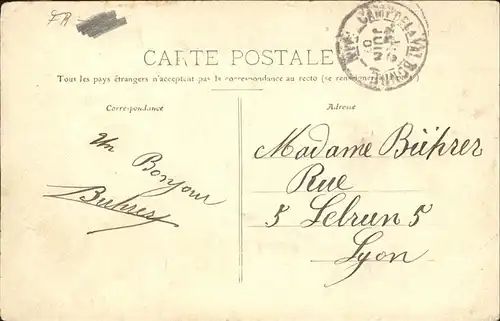 FR
CARTE POSTALE
Tous les pays étrangers n'acceptent pas la correspondance au recto (se renseigner à la poste)
Correspondance
Adresse
Un
Bonjour
Buhrer
Madame Bührer
Rue
5 Lebrun 5
Lyon